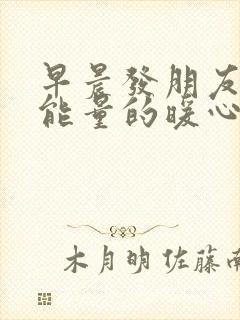 早晨發朋友
能量的暖心
木月明 佐藤南